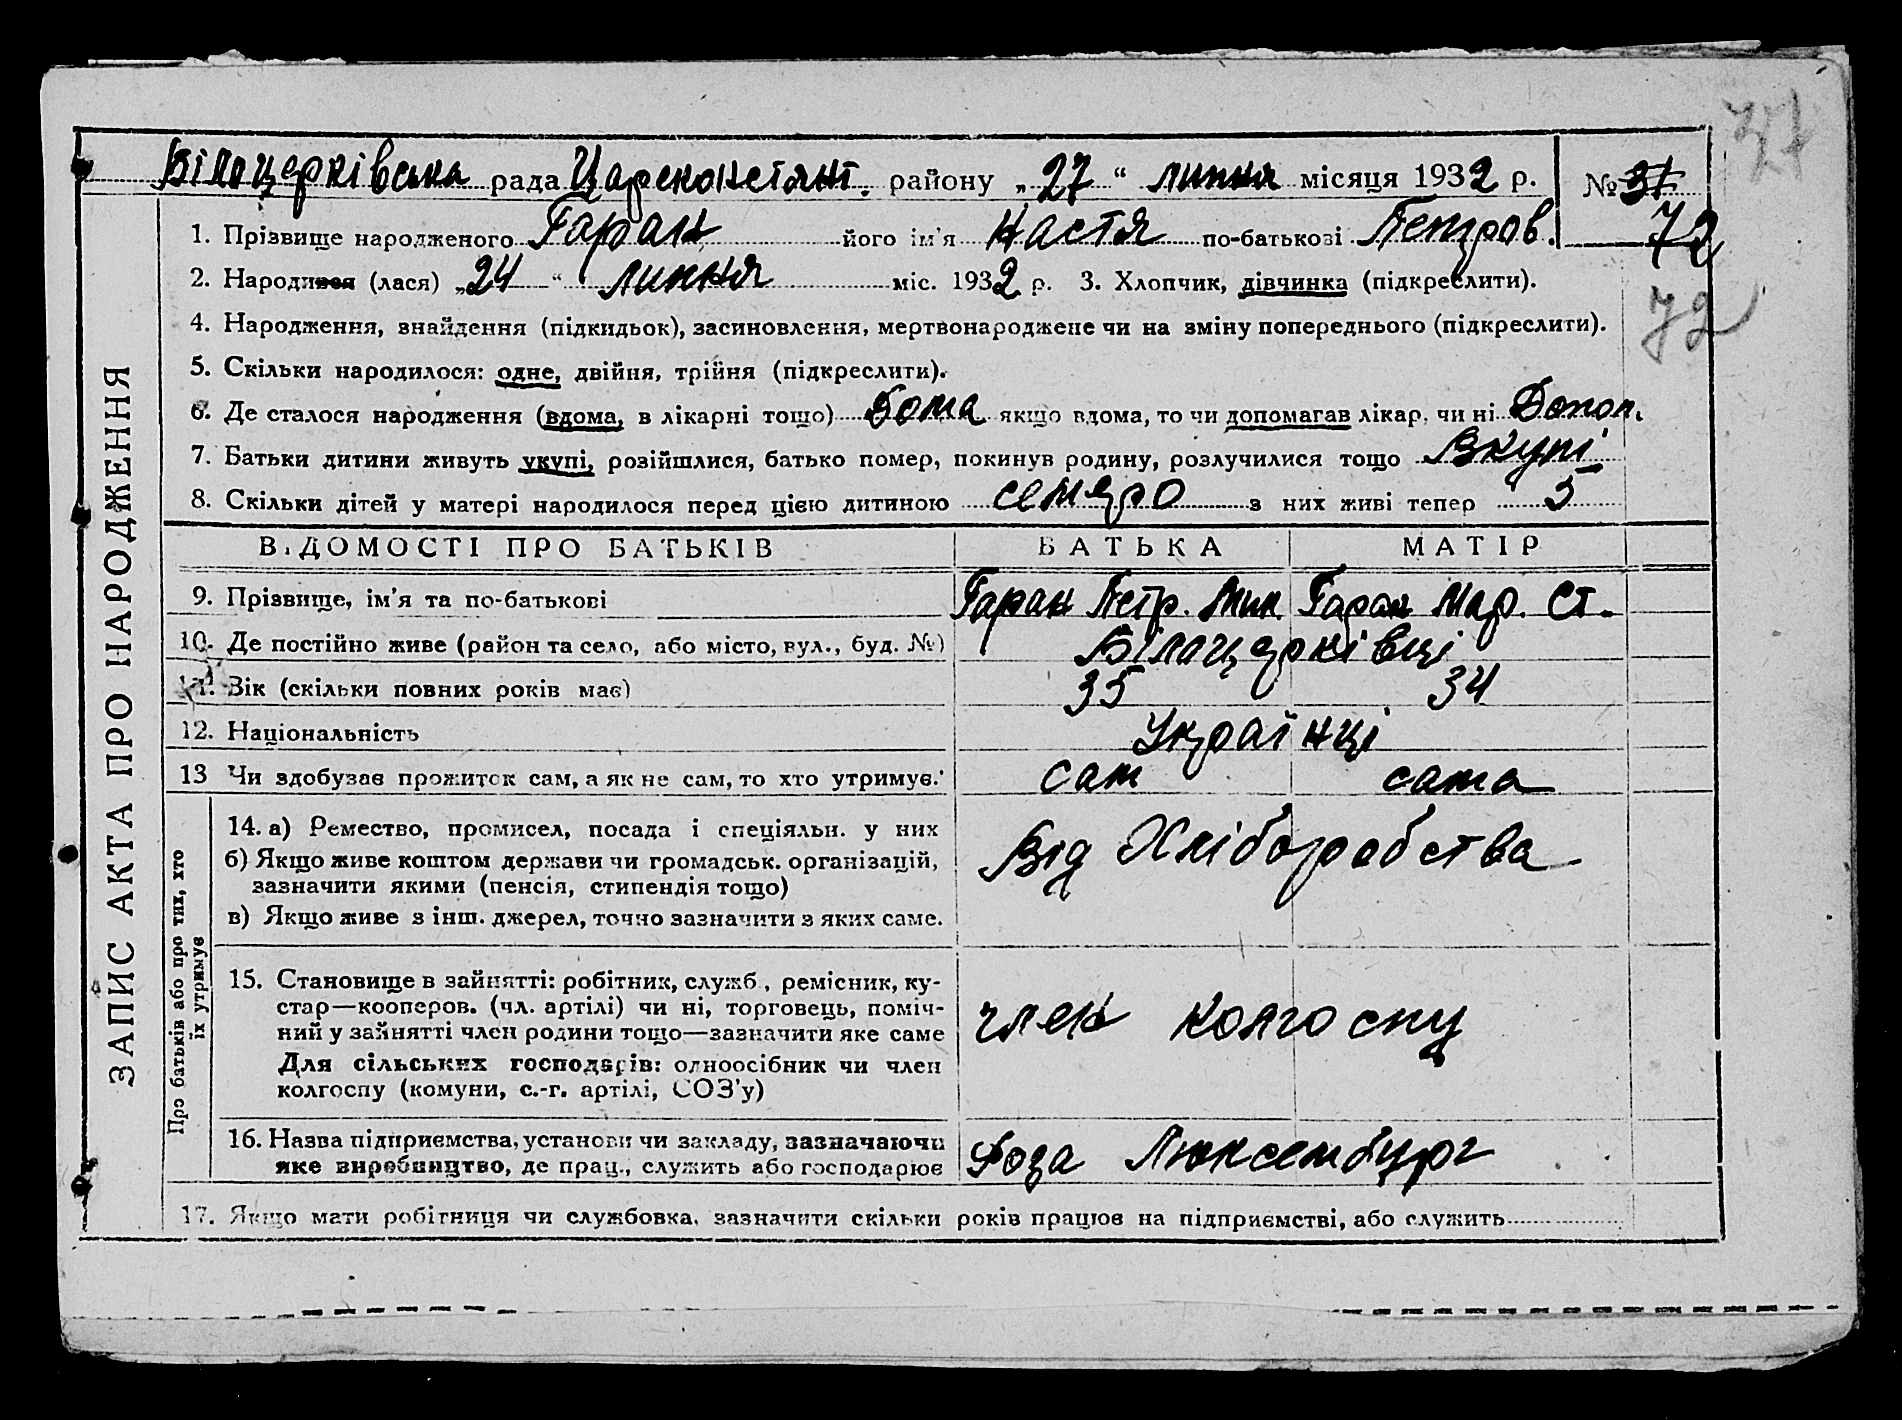 37
Білоцерківська рада Цареконстянт. району „27“ липня місяця 1932 р. № 37
72
1. Прізвище народженого Гаран його ім'я Настя по-батькові Петров.
2. Народився (лася) „24“ липня міс. 1932 р. 3. Хлопчик, дівчинка (підкреслити).
72
4. Народження, знайдення (підкидьок), засиновлення, мертвонароджене чи на зміну попереднього (підкреслити).
5. Скільки народилося: одне, двійня, трійня (підкреслити).
6. Де сталося народження (вдома, в лікарні тощо) Дома якщо вдома, то чи допомагав лікар, чи ні Допоп.
7. Батьки дитини живуть укупі, розійшлися, батько помер, покинув родину, розлучилися тощо Вкупі
8. Скільки дітей у матері народилося перед цією дитиною семеро з них живі тепер 5
ЗАПИС АКТА ПРО НАРОДЖЕННЯ
ВІДОМОСТІ ПРО БАТЬКІВ БАТЬКА МАТІР
9. Прізвище, ім'я та по-батькові Гаран Петр. Мик. Гаран Мар. Ст.
10. Де постійно живе (район та село, або місто, вул., буд. №) Білацерківці
11. Вік (скільки повних років має) 35 34
12. Національність Українці
13 Чи здобуває прожиток сам, а як не сам, то хто утримує. сам сама
Про батьків або про тих, хто
їх утримує
14. а) Ремество, промисел, посада і спеціяльн. у них
б) Якщо живе коштом держави чи громадськ. організацій,
зазначити якими (пенсія, стипендія тощо)
в) Якщо живе з інш. джерел, точно зазначити з яких саме.
Від Хліборобства
15. Становище в зайнятті: робітник, служб., ремісник, ку-
стар—кооперов. (чл. артілі) чи ні, торговець, поміч-
ний у зайнятті член родини тощо—зазначити яке саме
Для сільських господарів: одноосібник чи член
колгоспу (комуни, с.-г. артілі, СОЗ'у)
член колгоспу
16. Назва підприємства, установи чи закладу, зазначаючи
яке виробництво, де прац., служить або господарює
Роза Люксембург
17. Якщо мати робітниця чи службовка, зазначити скільки років працює на підприємстві, або служить